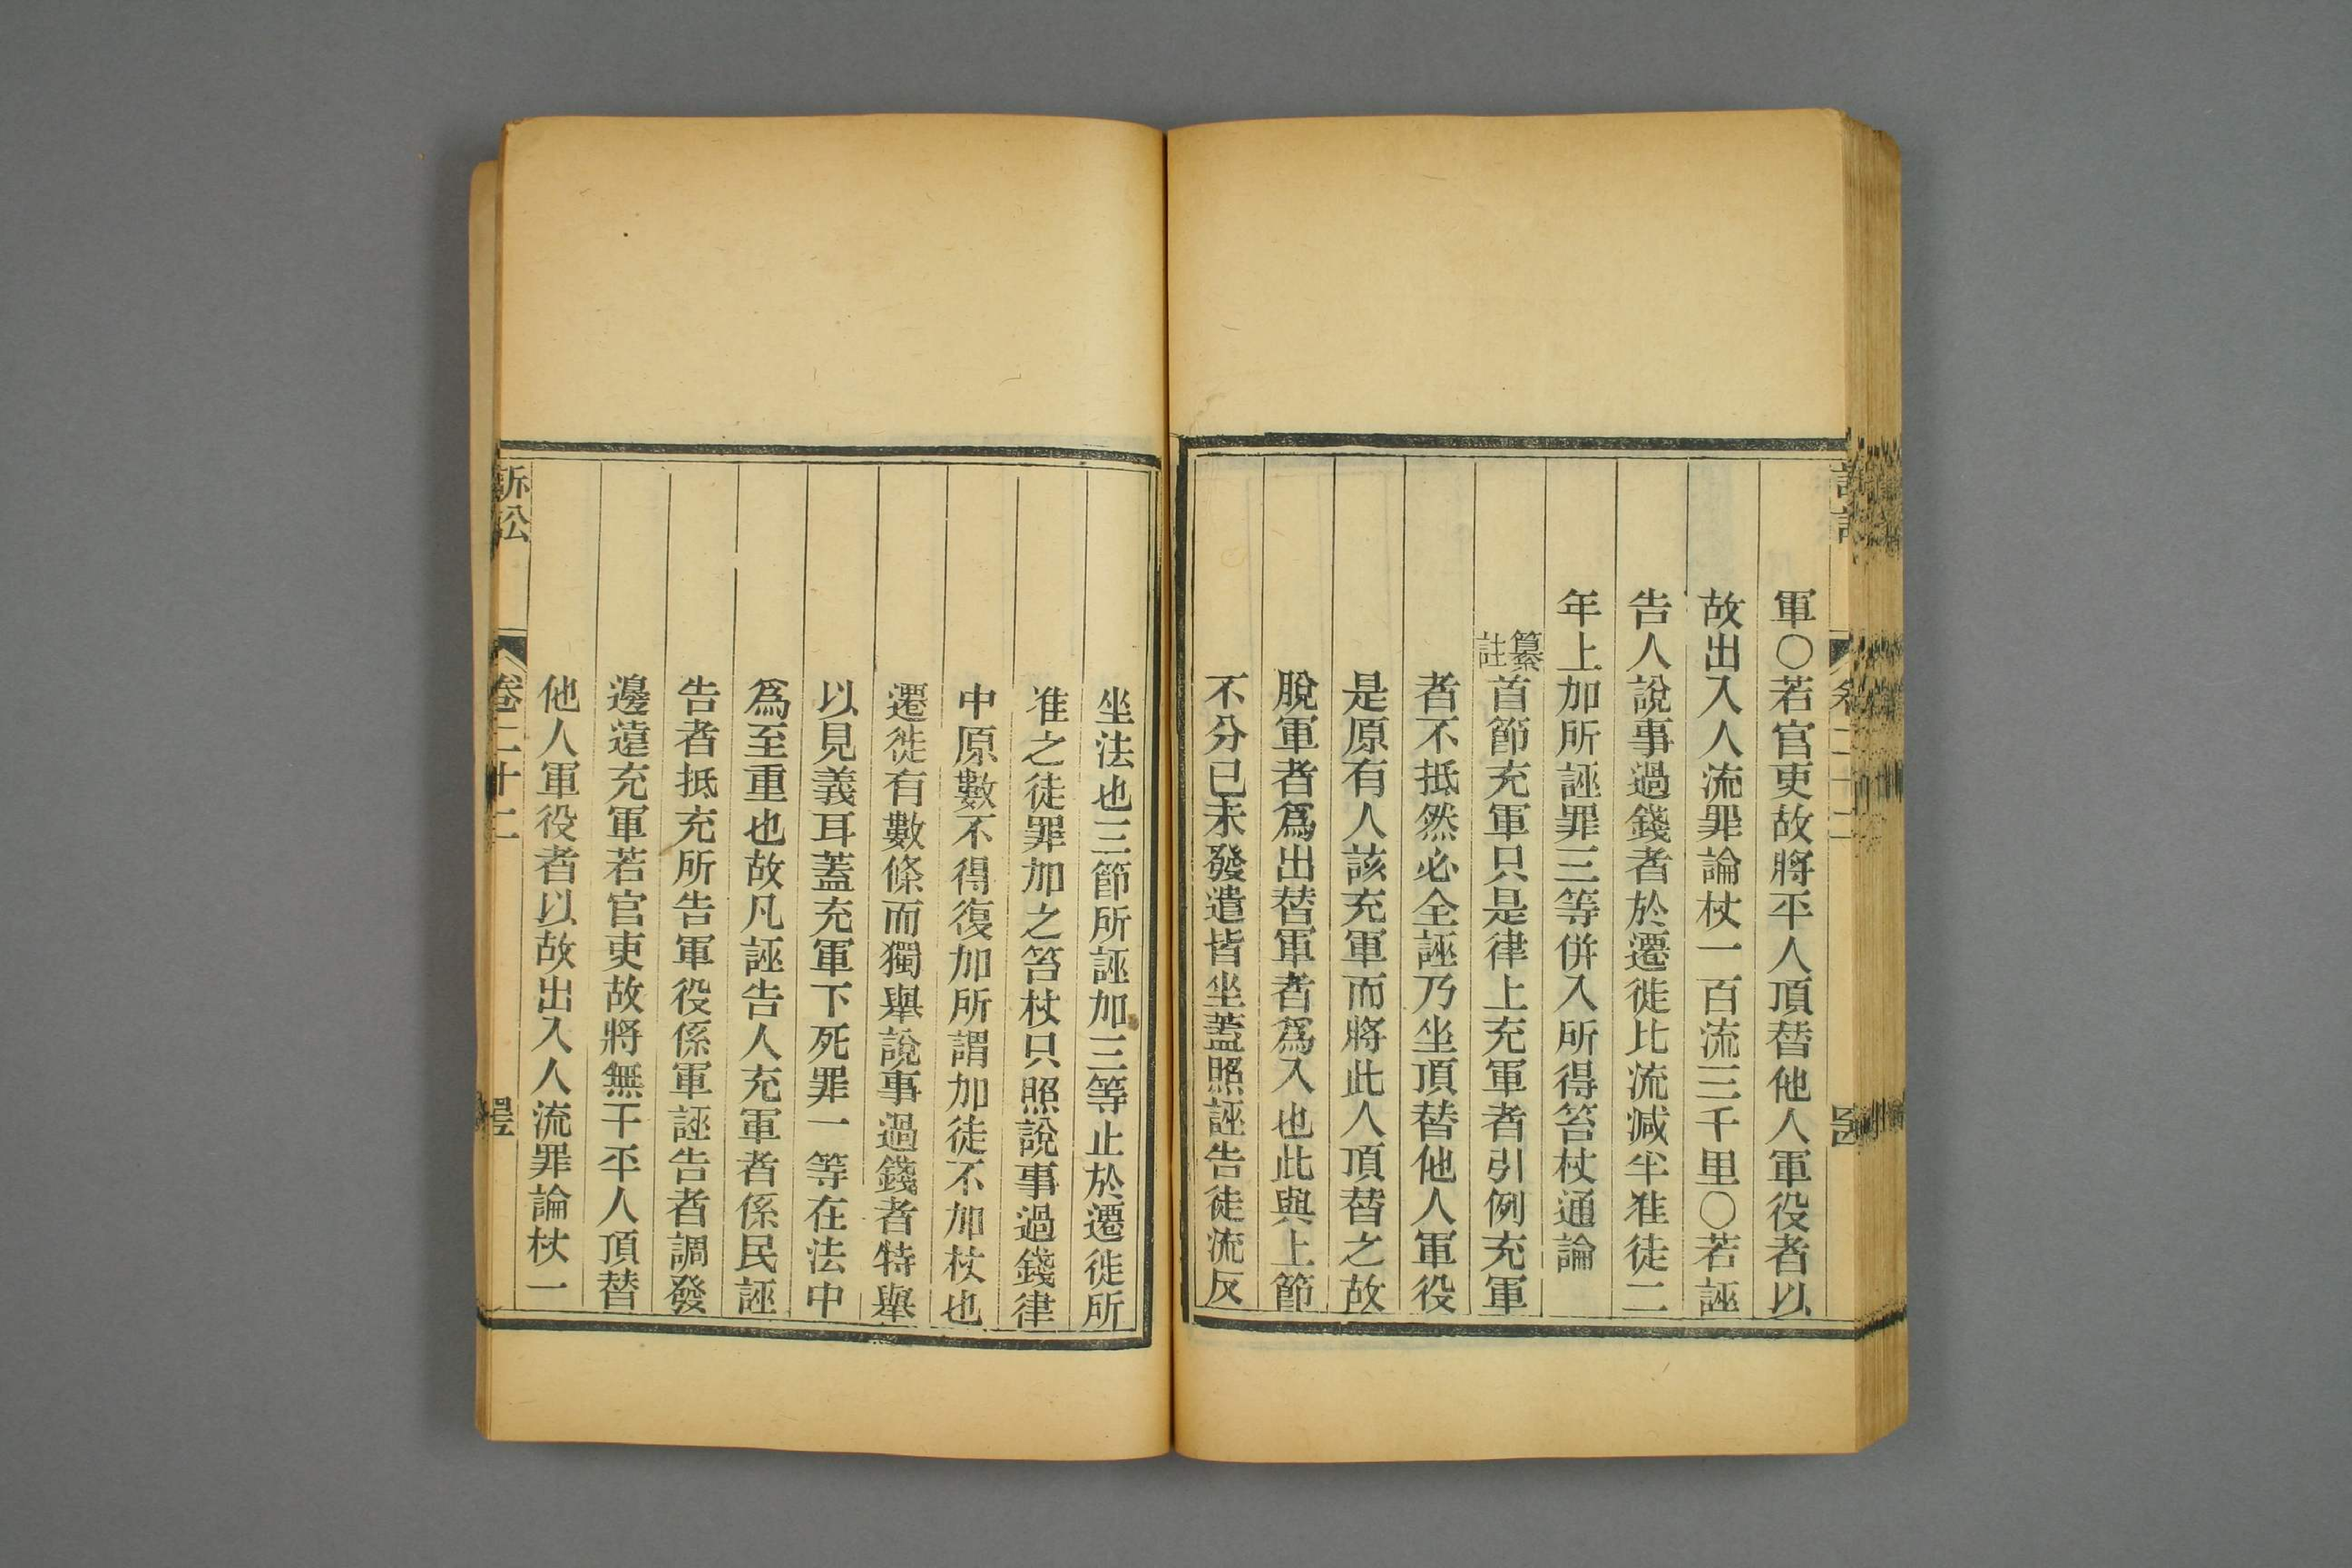 軍○若官吏故將平人頂替他人軍役者以
故出入人流罪論杖一百流三千里○若誣
告人說事過錢者於遷徙比流減半准徒二
年上加所誣罪三等併入所得笞杖通論
纂註首節充軍只是律上充軍者引例充軍
者不抵然必全誣乃坐頂替他人軍役
是原有人該充軍而將此人頂替之故
脫軍者爲出替軍者爲入也此與上節
不分已未發遣皆坐蓋照誣告徒流反
坐法也三節所誣加三等止於遷徙所
准之徒罪加之笞杖只照說事過錢律
中原數不得復加所謂加徒不加杖也
遷徙有數條而獨舉說事過錢者特舉
以見義耳蓋充軍下死罪一等在法中
爲至重也故凡誣告人充軍者係民誣
告者抵充所告軍役係軍誣告者調發
邊遠充軍若官吏故將無干平人頂替
他人軍役者以故出入人流罪論杖一
訴訟
卷二十二